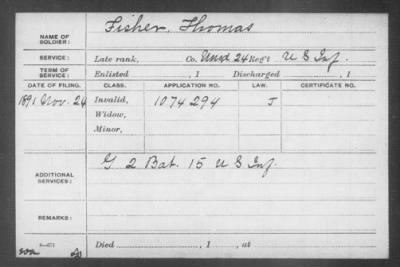 Fisher, Thomas
NAME OF SOLDIER:
SERVICE: Late rank, Co. Unas 24 Reg't U S Inf.
TERM OF SERVICE: Enlisted , 1 Discharged , 1
DATE OF FILING. CLASS. APPLICATION NO. LAW. CERTIFICATE NO.
1891 Nov. 24 Invalid, 1074294 J
Widow,
Minor,
ADDITIONAL SERVICES: G 2 Bat. 15 U S Inf.
REMARKS:
Died , 1 , at